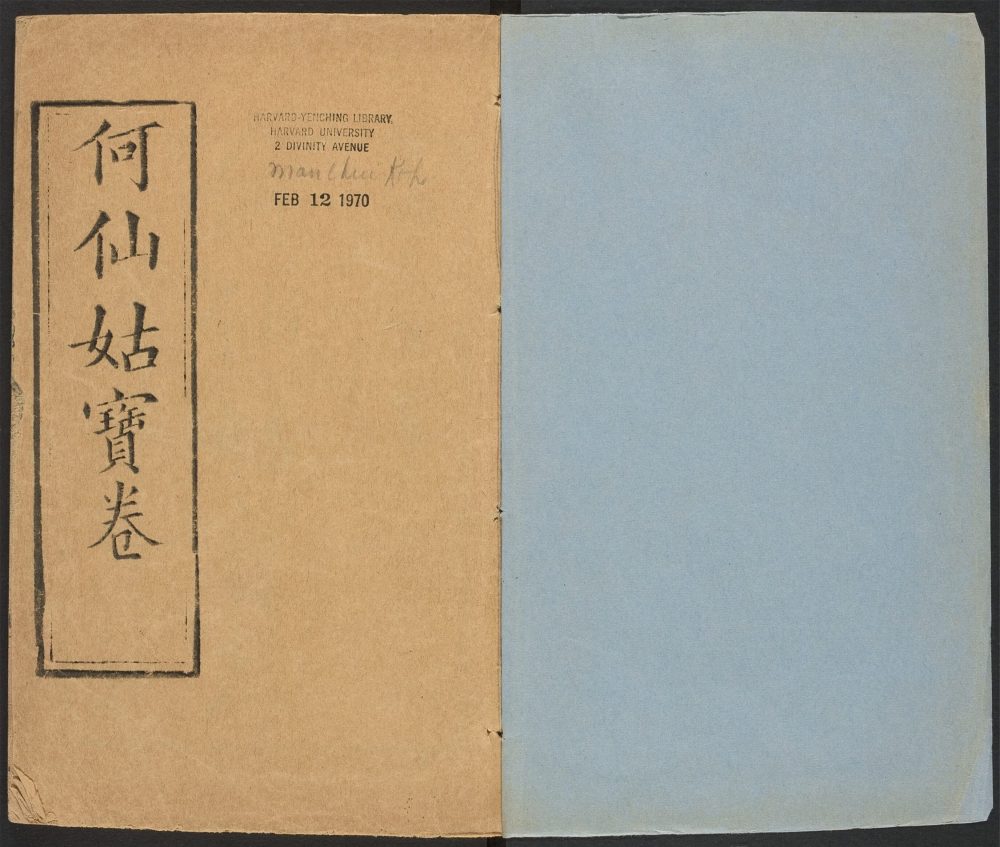 何仙姑寶卷
HARVARD-YENCHING LIBRARY,
HARVARD UNIVERSITY
2 DIVINITY AVENUE
FEB 12 1970